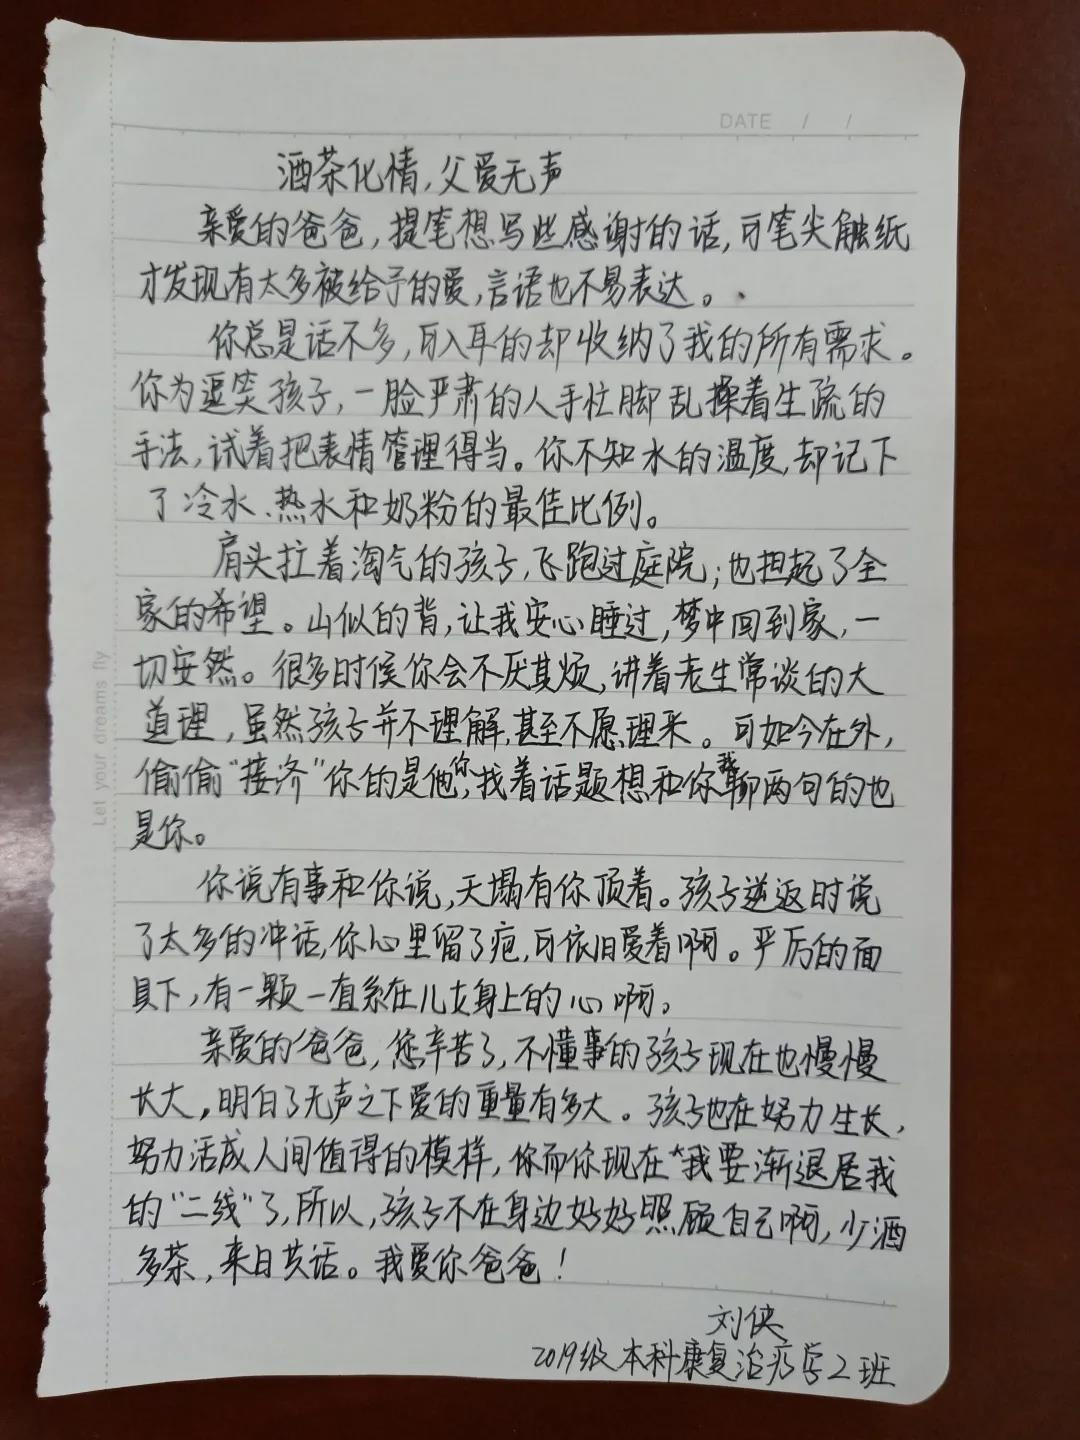 DATE / /
酒茶化情，父爱无声
亲爱的爸爸，提笔想写些感谢的话，可笔尖触纸
才发现有太多被给予的爱，言语也不易表达。
你总是话不多，可入耳的却收纳了我的所有需求。
你为逗笑孩子，一脸严肃的人手忙脚乱操着生疏的
手法，试着把表情管理得当。你不知水的温度，却记下
了冷水、热水和奶粉的最佳比例。
肩头拉着淘气的孩子，飞跑过庭院；也担起了全
家的希望。山似的背，让我安心睡过，梦中回到家，一
切安然。很多时候你会不厌其烦，讲着老生常谈的大
道理，虽然孩子并不理解，甚至不愿理采。可如今在外，
偷偷“接济”你的是他你，找着话题想和你我聊两句的也
是你。
你说有事和你说，天塌有你顶着。孩子逆返时说
了太多的冲话，你心里留了疤，可依旧爱着啊。严厉的面
具下，有一颗一直系在儿女身上的心啊。
亲爱的爸爸，您辛苦了，不懂事的孩子现在也慢慢
长大，明白了无声之下爱的重量有多大。孩子也在努力生长，
努力活成人间值得的模样，你而你现在我要渐退居我
的“二线”了，所以，孩子不在身边好好照顾自己啊，少酒
多茶，来日共话。我爱你爸爸！
刘侠
2019级本科康复治疗学2班
Let your dreams fly